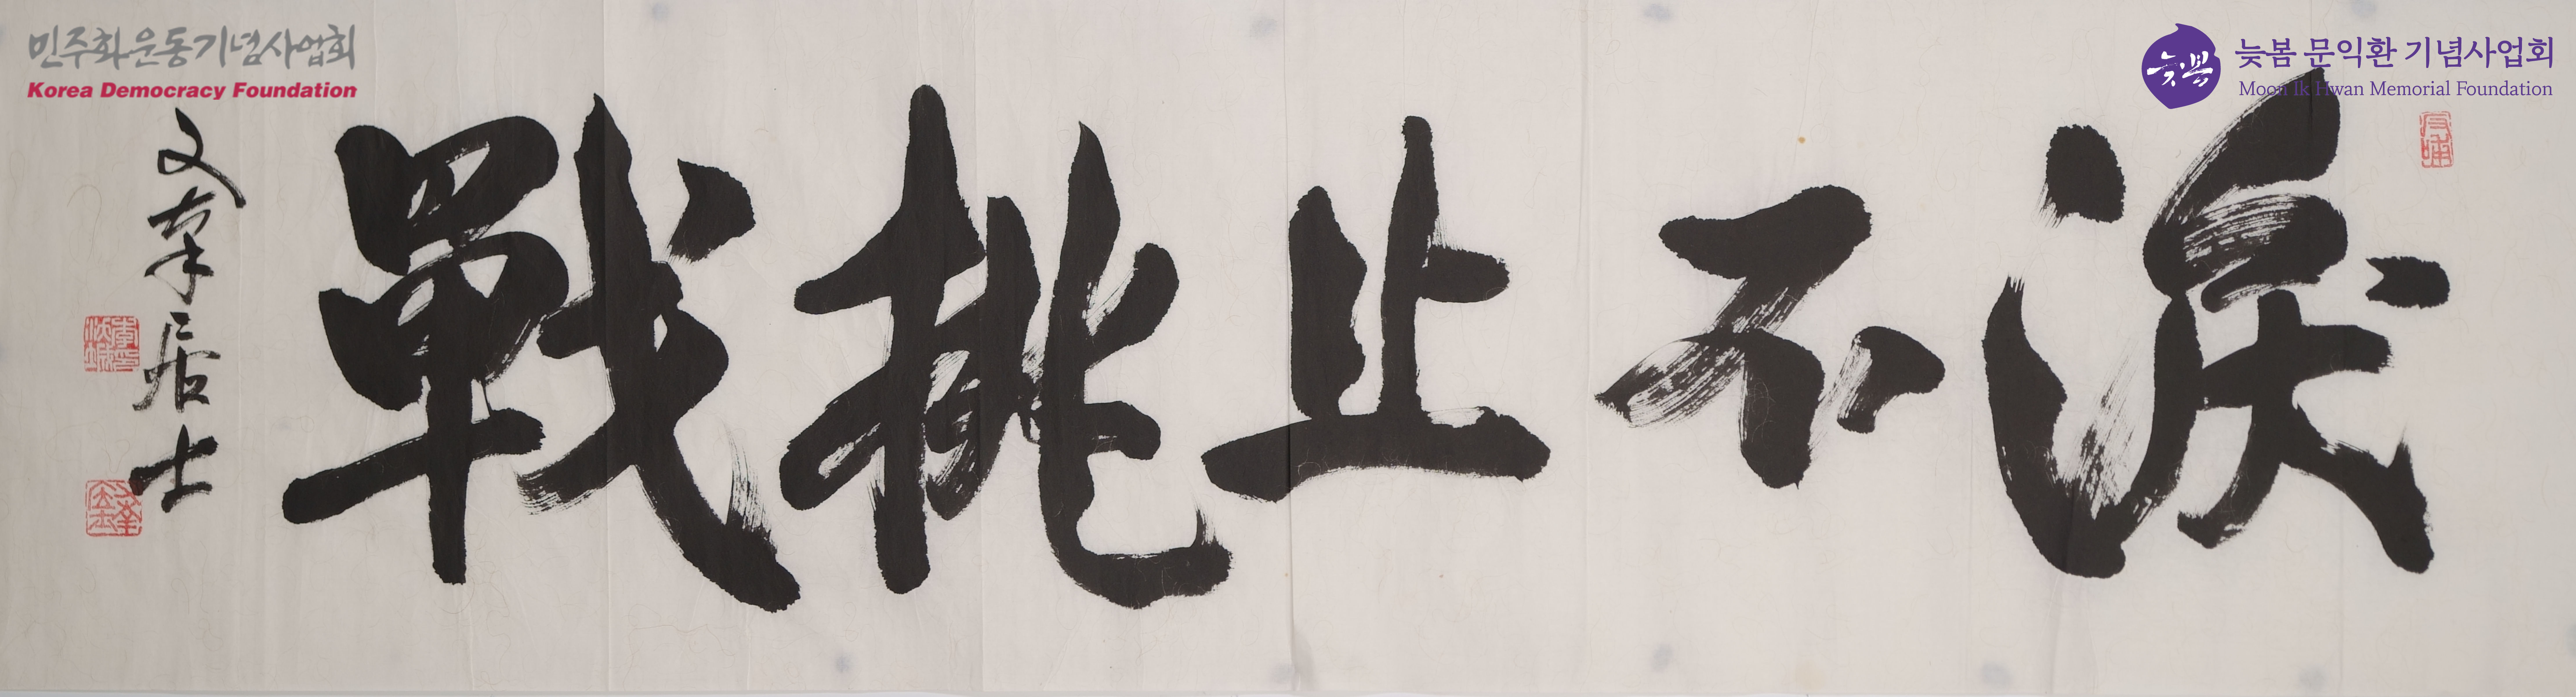 민주화운동기념사업회
Korea Democracy Foundation
늦봄
늦봄 문익환 기념사업회
Moon Ik Hwan Memorial Foundation
淚不止挑戰
居士